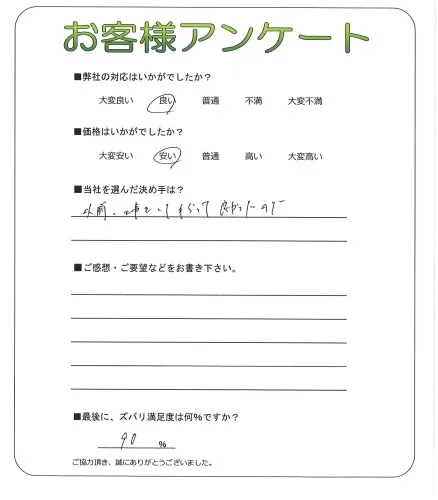 お客様アンケート
■弊社の対応はいかがでしたか?
大変良い 良い 普通 不満 大変不満
■価格はいかがでしたか?
大変安い 安い 普通 高い 大変高い
■当社を選んだ決め手は?
以前、 してもらって良かったので
■ご感想・ご要望などをお書き下さい。
■最後に、ズバリ満足度は何%ですか?
90 %
ご協力頂き、誠にありがとうございました。